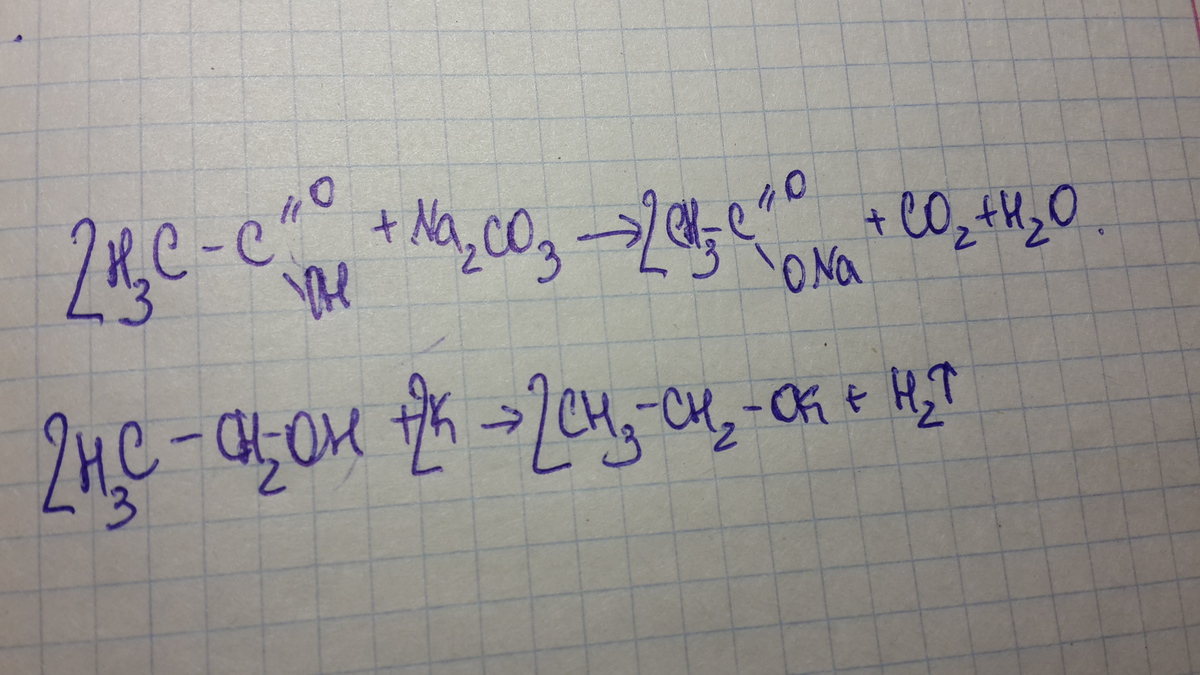 2H₃C-C(=O)\OH + Na₂CO₃ → 2CH₃-C(=O)\ONa + CO₂ + H₂O.
2H₃C-CH₂-OH + 2K → 2CH₃-CH₂-OK + H₂↑